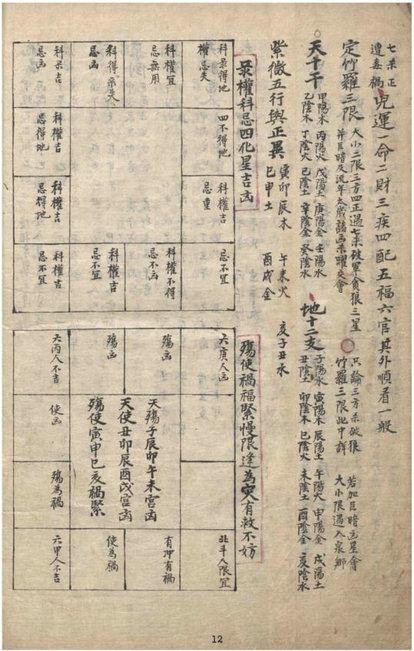 七杀正
遭喪禍
兒運一命二財三疾四配五福六官其外順看一般
定竹羅三限
大小二限三方四正遇七杀破軍貪狼三星
并巨暗及流年太歲諸凶杀曜交會
只論三方杀破狼
竹羅三限此中詳
若加巨暗凶星會
大小限遇入泉鄉
天十干
甲陽木 丙陽火 戊陽土 庚陽金 壬陽水
乙陰木 丁陰火 己陰土 辛陰金 癸陰水
地十二支
子陽水 寅陽木 辰陽土 午陽火 申陽金 戌陽土
丑陰土 卯陰木 巳陰火 未陰土 酉陰金 亥陰水
紫微五行與正異
寅卯辰木
巳申土
午未火
酉戌金
亥子丑水
彔權科忌四化星吉凶
科彔得地
權忌失
四不得地
忌重
忌不宜
科權宜
忌無用
科權不得
科得彔失
忌凶
科權吉
忌不宜
科彔吉
忌凶
科權吉
忌得地
科權吉
忌得地
科權吉
忌不宜
殤使禍福緊慢限逢為灾有救不妨
六庚人凶
北斗人限宜
殤凶
天殤子辰卯午未宮凶
有冲有禍
殤凶
天使丑卯辰酉戌宮凶
殤使寅申巳亥禍緊
使為禍
六丙人不吉
使凶
殤為禍
六甲人不吉
12